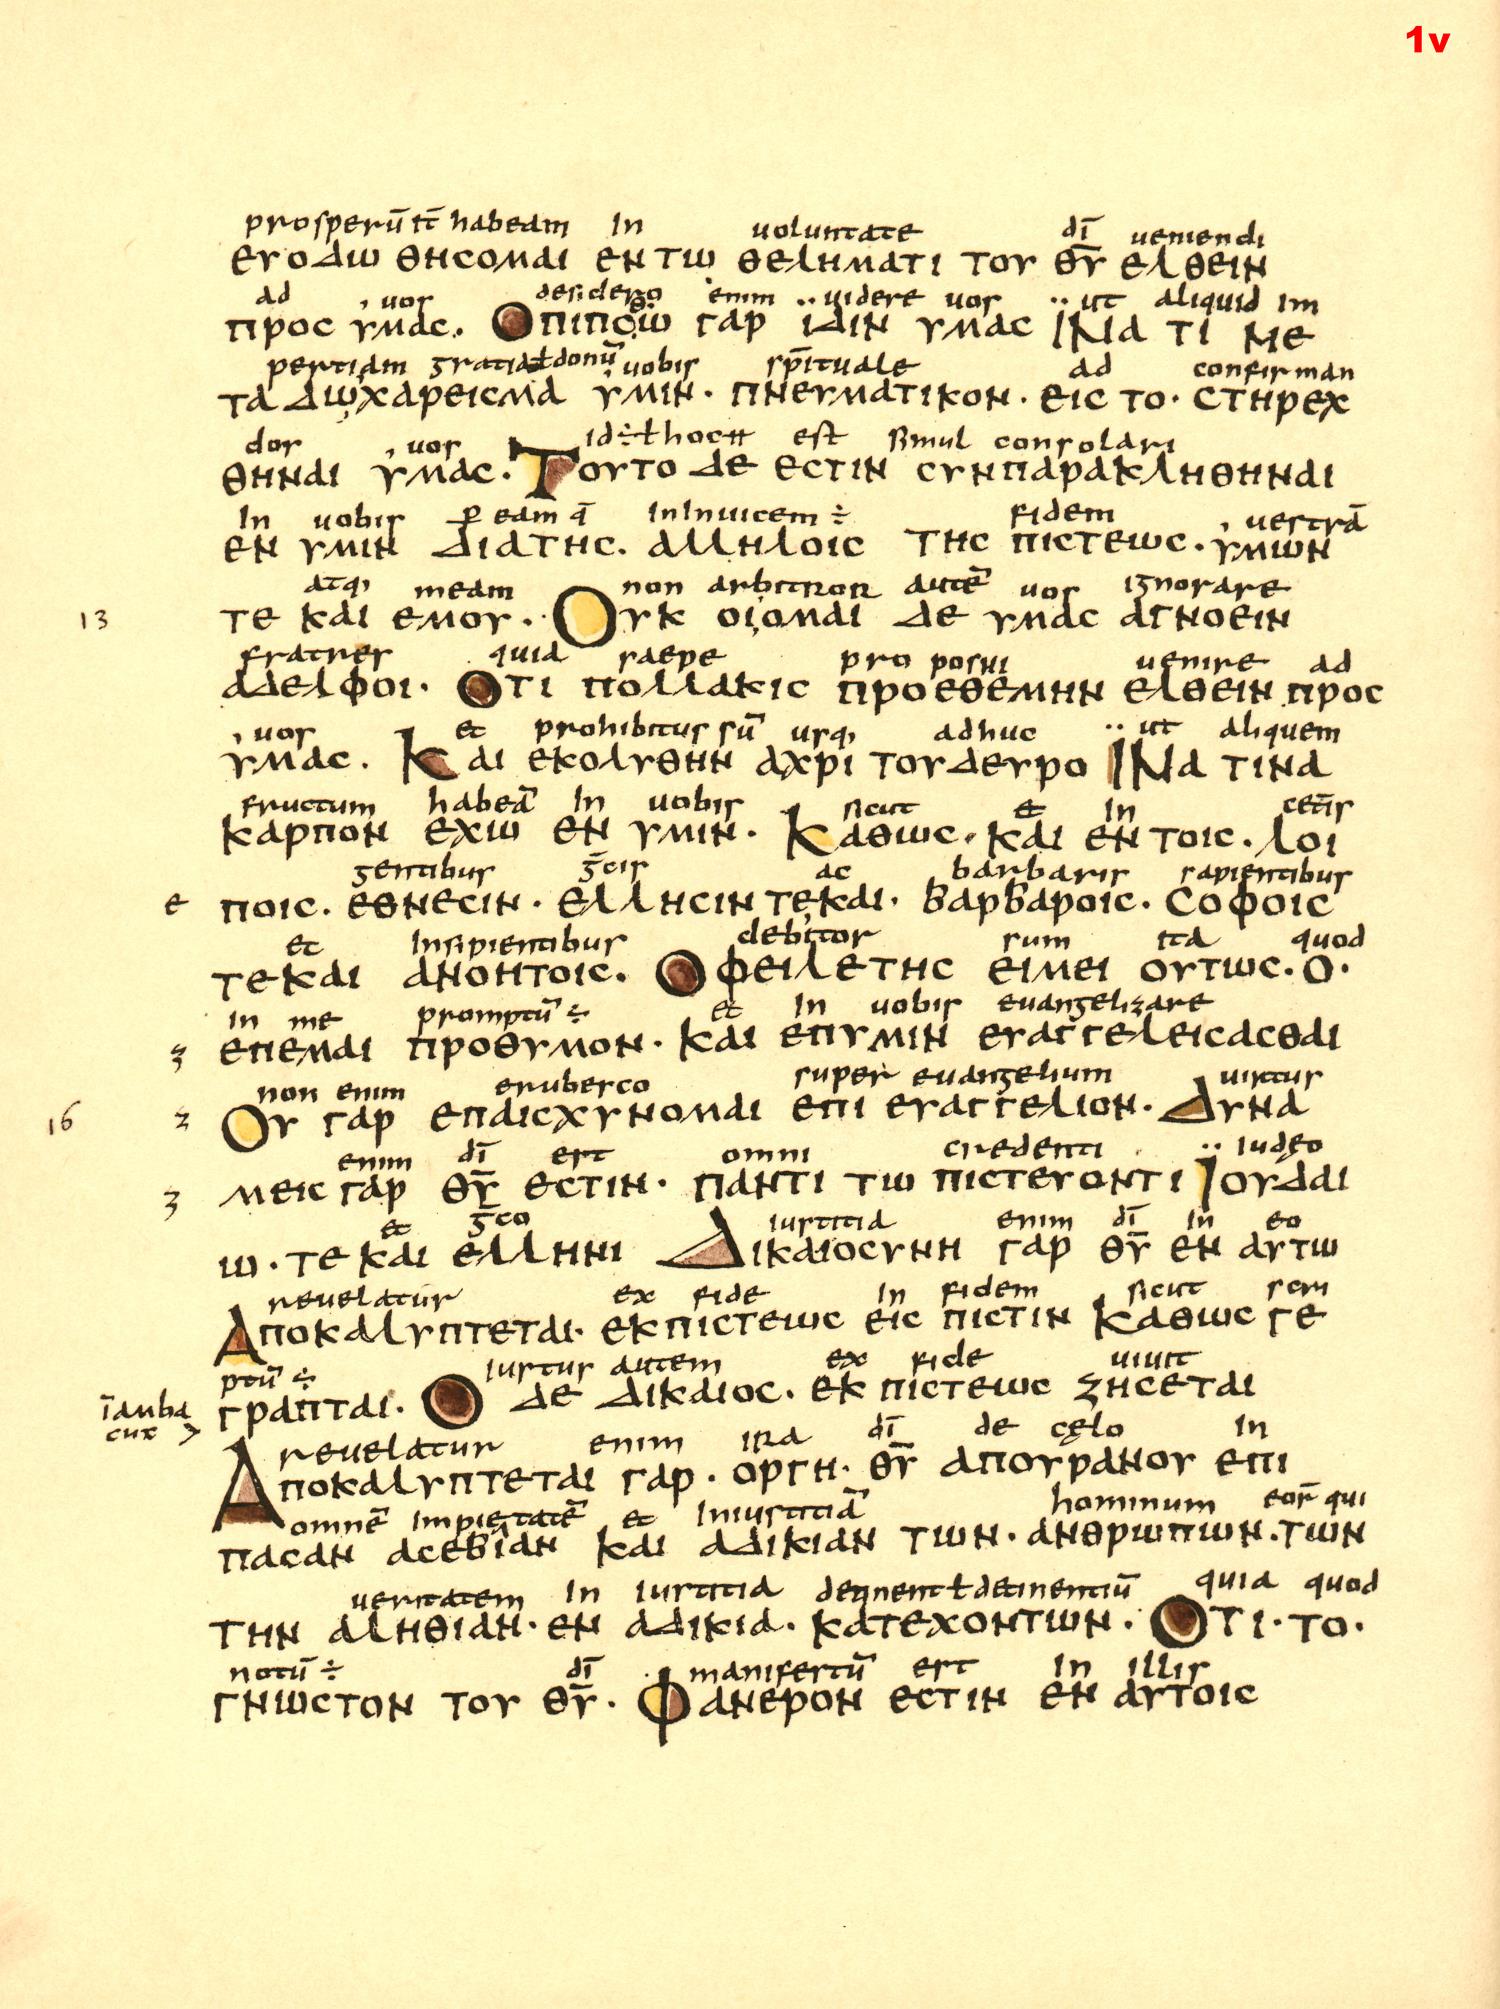 1v
prosperū iť habeam In uoluntate dī ueniendi
ευοδω θησομαι εν τω θεληματι του θ̅υ̅ ελθειν
ad uos desidero enim uidere uos ut aliquid im
προς υμας. Οπιποθω γαρ ϊδιν υμας Ϊνα τι με
pertiam gratiā ł donū uobis sp̄ituale ad confirman
τα δω χαρεισμα υμιν· πνευματικον· εις το· στηρεχ
dos uos id÷ ł hoc est simul consolari
θηναι υμας. Τουτο δε εστιν συνπαρακληθηναι
In uobis ꝑ eam q̄ Ininuicem ÷ fidem uestrā
εν υμιν διατης. αλληλοις της πιστεως. υμων
atq; meam non arbitror autē uos ignorare
13 τε και εμου. Ουκ οιομαι δε υμας αγνοειν
fratres quia saepe proposui uenire ad
αδελφοι· Οτι πολλακις προεθεμην ελθειν προς
uos et prohibitus sū usq; adhuc ut aliquem
υμας. Και εκολυθην αχρι τουδευρο Ϊνα τινα
fructum habeā In uobis sicut et In cet̄is
καρπον εχω εν υμιν. Καθως. και εν τοις. λοι
gentibus ḡcis ac barbaris sapientibus
e ποις. εθνεσιν· ελλησιν τεκαι· βαρβαροις. σοφοις
et Insipientibus debitor sum ita quod
τεκαι ανοητοις. Οφειλετης ειμει ουτως. ο·
In me promptū ÷ et In uobis euangelizare
ʒ επεμαι προθυμον. και επυμιν ευαγγελεισασθαι
non enim erubesco super euangelium uirtus
16 z Ου γαρ επαισχυνομαι επι ευαγγελιον. Δυνα
enim dī est omni credenti iudęo
ʒ μεις γαρ θ̅υ̅ εστιν· παντι τω πιστευοντι Ϊουδαι
et ḡco iustitia enim dī In eo
ω· τε και ελληνι Δικαιοσυνη γαρ θ̅υ̅ εν αυτω
reuelatur ex fide In fidem sicut scri
Αποκαλυπτεται· εκ πιστεως εις πιστιν καθως γε
ptū ÷ iustus autem ex fide uiuit
īamba cuc γραπται. Ο δε δικαιος. εκ πιστεως ζησεται
reuelatur enim ira dī de cęlo In
Αποκαλυπτεται γαρ. οργη· θ̅υ̅ απουρανου επι
omnē Impietatē et Iniustitiā hominum eor̄ qui
πασαν ασεβιαν και αδικιαν των· ανθρωπων. των
ueritatem In iustitia detinent ł detinentiū quia quod
την αληθιαν· εν αδικια. κατεχοντων. Οτι· το·
notū ÷ dī manifestū est In illis
γνωστον του θ̅υ̅. Φανερον εστιν εν αυτοις